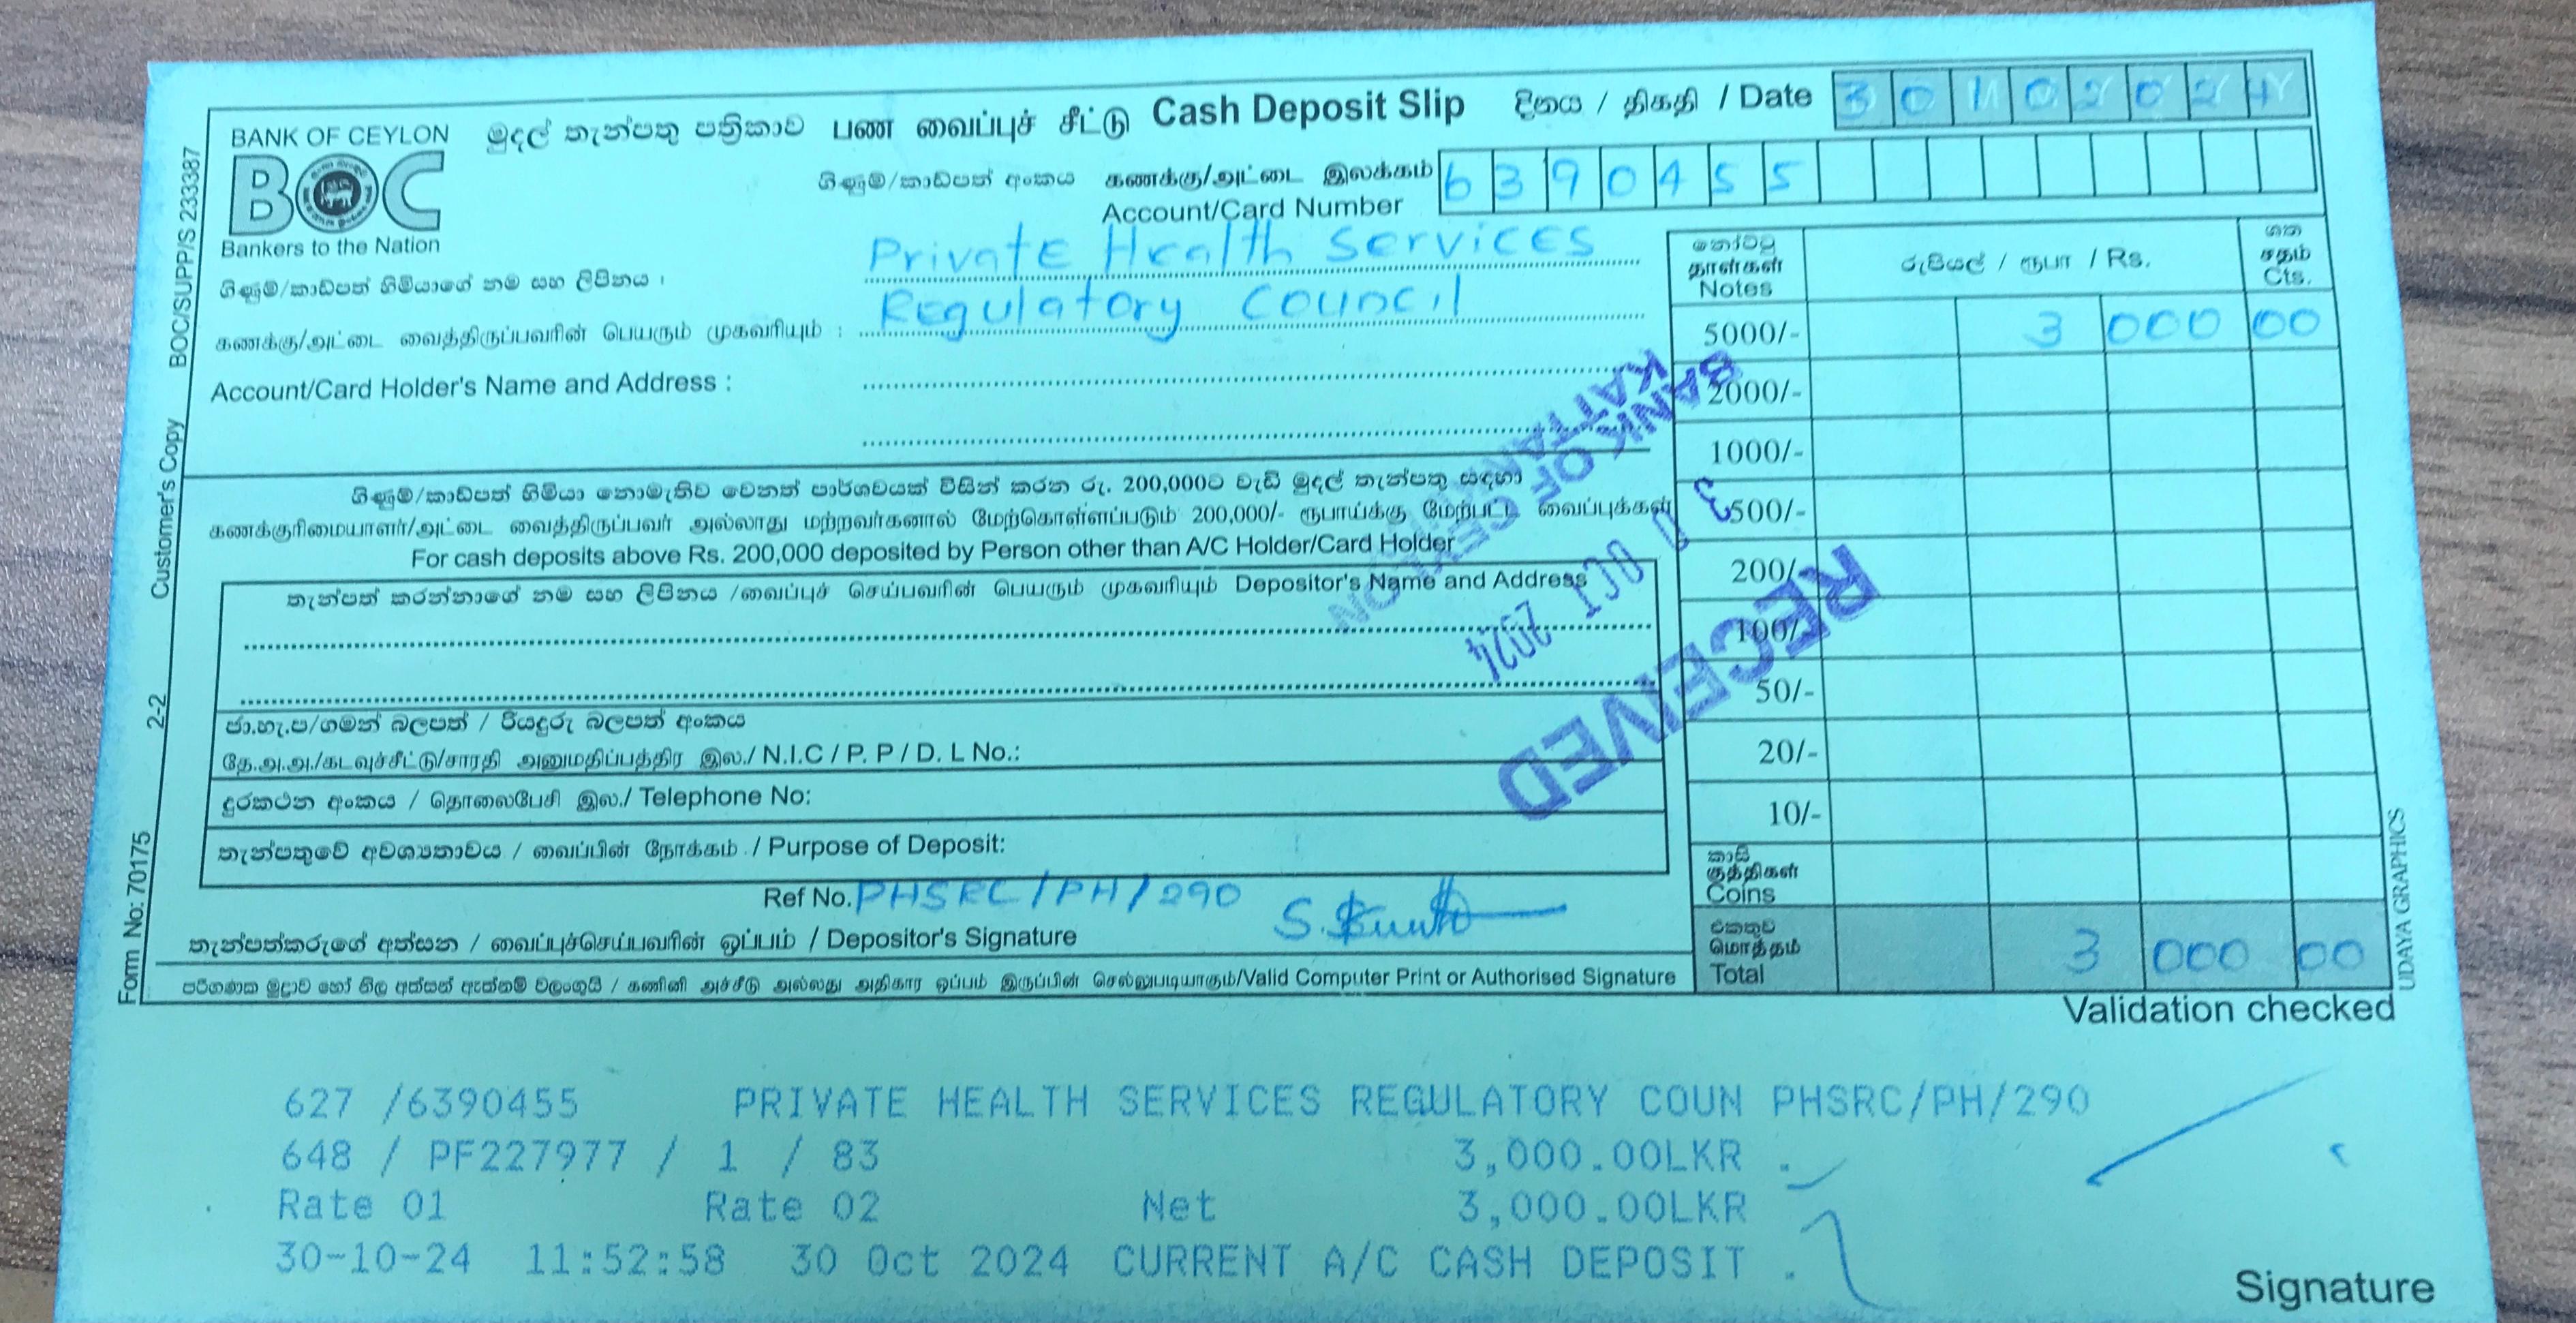 BANK OF CEYLON
BOC
Bankers to the Nation
මුදල් තැන්පතු පත්‍රිකාව பண வைப்புச் சீட்டு Cash Deposit Slip
දිනය / திகதி / Date 30102024
ගිණුම්/කාඩ්පත් අංකය கணக்கு/அட்டை இலக்கம்
Account/Card Number 6390455
ගිණුම්/කාඩ්පත් හිමියාගේ නම සහ ලිපිනය :
Private Health Services
கணக்கு/அட்டை வைத்திருப்பவரின் பெயரும் முகவரியும் :
Regulatory Council
Account/Card Holder's Name and Address :
ගිණුම්/කාඩ්පත් හිමියා නොමැතිව වෙනත් පාර්ශවයක් විසින් කරන රු. 200,000ට වැඩි මුදල් තැන්පතු සඳහා
கணக்குரிமையாளர்/அட்டை வைத்திருப்பவர் அல்லாது மற்றவர்களால் மேற்கொள்ளப்படும் 200,000/- ரூபாய்க்கு மேற்பட்ட வைப்புக்கள்
For cash deposits above Rs. 200,000 deposited by Person other than A/C Holder/Card Holder
තැන්පත් කරන්නාගේ නම සහ ලිපිනය /வைப்புச் செய்பவரின் பெயரும் முகவரியும் Depositor's Name and Address
ජා.හැ.ප/ගමන් බලපත් / රියදුරු බලපත් අංකය
தே.அ.அ./கடவுச்சீட்டு/சாரதி அனுமதிப்பத்திர இல./ N.I.C / P. P / D. L No.:
දුරකථන අංකය / தொலைபேசி இல./ Telephone No:
තැන්පතුවේ අවශ්‍යතාවය / வைப்பின் நோக்கம் / Purpose of Deposit:
Ref No. PHSRC/PH/290
තැන්පත්කරුගේ අත්සන / வைப்புச்செய்பவரின் ஒப்பம் / Depositor's Signature
පරිගණක මුද්‍රාව හෝ නිල අත්සන් ඇත්නම් වලංගුයි / கணினி அச்சீடு அல்லது அதிகார ஒப்பம் இருப்பின் செல்லுபடியாகும்/Valid Computer Print or Authorised Signature
නෝට්ටු
தாள்கள்
Notes
රුපියල් / ரூபா / Rs.
ශත
சதம்
Cts.
5000/- 3 000 00
2000/-
1000/-
500/-
200/-
100/-
50/-
20/-
10/-
කාසි
குத்திகள்
Coins
එකතුව
மொத்தம்
Total 3 000 00
BANK OF CEYLON
30 OCT 2024
RECEIVED
Form No: 70175 2-2 Customer's Copy BOC/SUPP/S 233387
UDAYA GRAPHICS
Validation checked
627 /6390455 PRIVATE HEALTH SERVICES REGULATORY COUN PHSRC/PH/290
648 / PF227977 / 1 / 83 3,000.00LKR
Rate 01 Rate 02 Net 3,000.00LKR
30-10-24 11:52:58 30 Oct 2024 CURRENT A/C CASH DEPOSIT
Signature